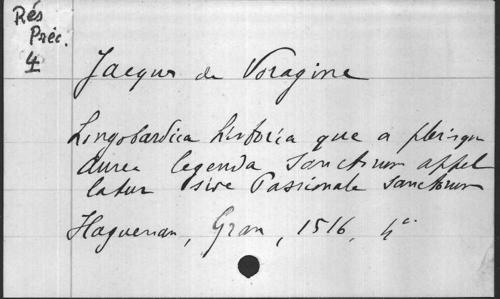 Rés
Préc.
4
Jacques de Voragine
Longobardica historia que a plerisque
Aurea legenda sanctorum appel
latur sive Passionale sanctorum
Haguenau, Gran, 1516, 4°.